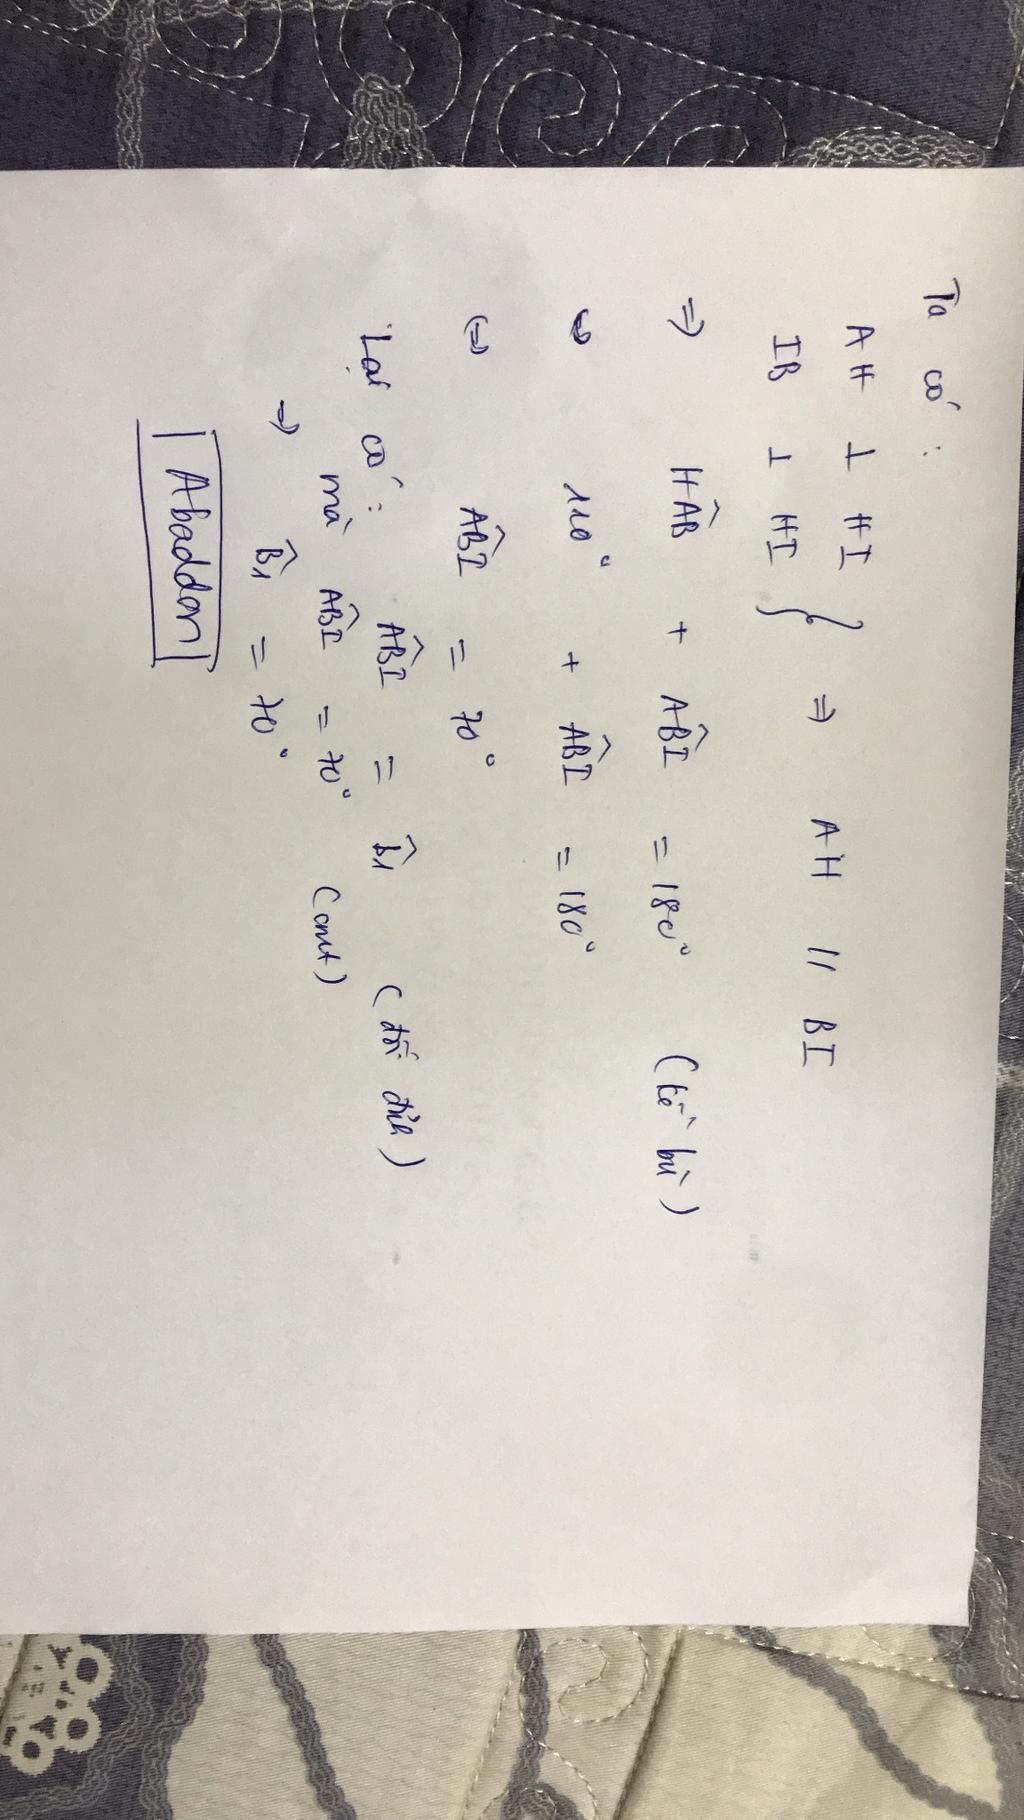 Ta có :
AH ⊥ HI
IB ⊥ HI } ⇒ AH // BI
⇒ HÂB + AB̂I = 180° (kề bù)
⇔ 110° + AB̂I = 180°
⇔ AB̂I = 70°
Lại có : AB̂I = B̂1 (đối đỉnh)
mà AB̂I = 70° (cmt)
⇒ B̂1 = 70°
Abaddon